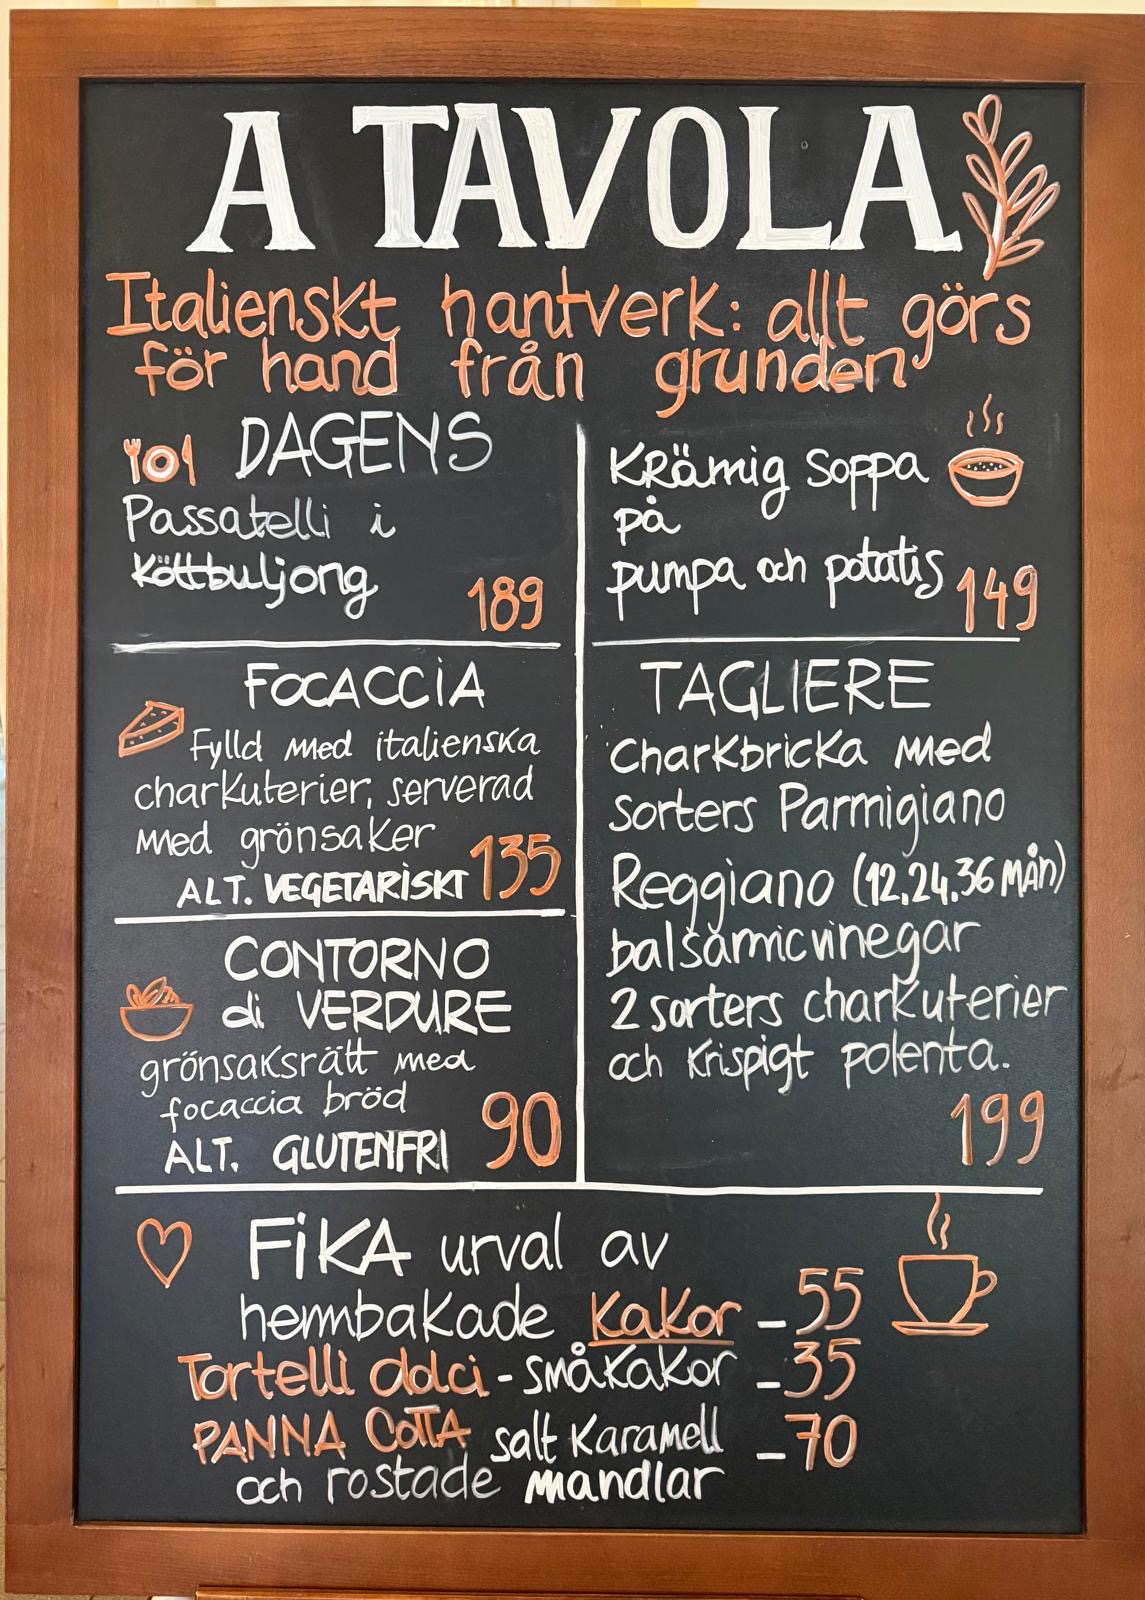 A TAVOLA
Italienskt hantverk: allt görs
för hand från grunden
DAGENS
Passatelli i
Köttbuljong
189
Krämig soppa
på
pumpa och potatis
149
FOCACCIA
Fylld med italienska
charkuterier, serverad
med grönsaker
ALT. VEGETARISKT 135
CONTORNO
di VERDURE
grönsaksrätt med
focaccia bröd
ALT. GLUTENFRI 90
TAGLIERE
Charkbricka med
sorters Parmigiano
Reggiano (12.24.36 MÅN)
balsamicvinegar
2 sorters charkuterier
och krispigt polenta.
199
FiKA urval av
hembakade Kakor - 55
Tortelli dolci - småkakor - 35
PANNA COTTA salt Karamell - 70
och rostade mandlar